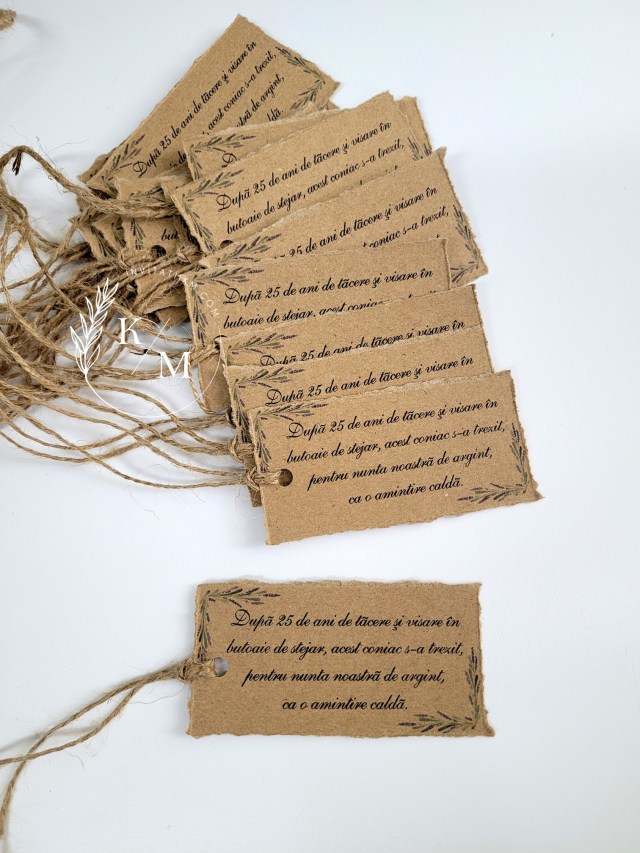 Dupã 25 de ani de tãcere şi visare în
s-a trezit,
de argint,
caldã
Dupã 25 de ani de tãcere şi visare în
butoaie de stejar, acest coniac s-a trezit,
25 de ani de tãcere şi visare în
coniac s-a trezit,
Dupã 25 de ani de tãcere
butoaie de stejar, acest coniac
Dupã 25 de ani de tãcere şi visare în
Dupã 25 de ani de tãcere şi visare în
Dupã 25 de ani de tãcere şi visare în
butoaie de stejar, acest coniac s-a trezit,
pentru nunta noastrã de argint,
ca o amintire caldã.
K
M
Dupã 25 de ani de tãcere şi visare în
butoaie de stejar, acest coniac s-a trezit,
pentru nunta noastrã de argint,
ca o amintire caldã.